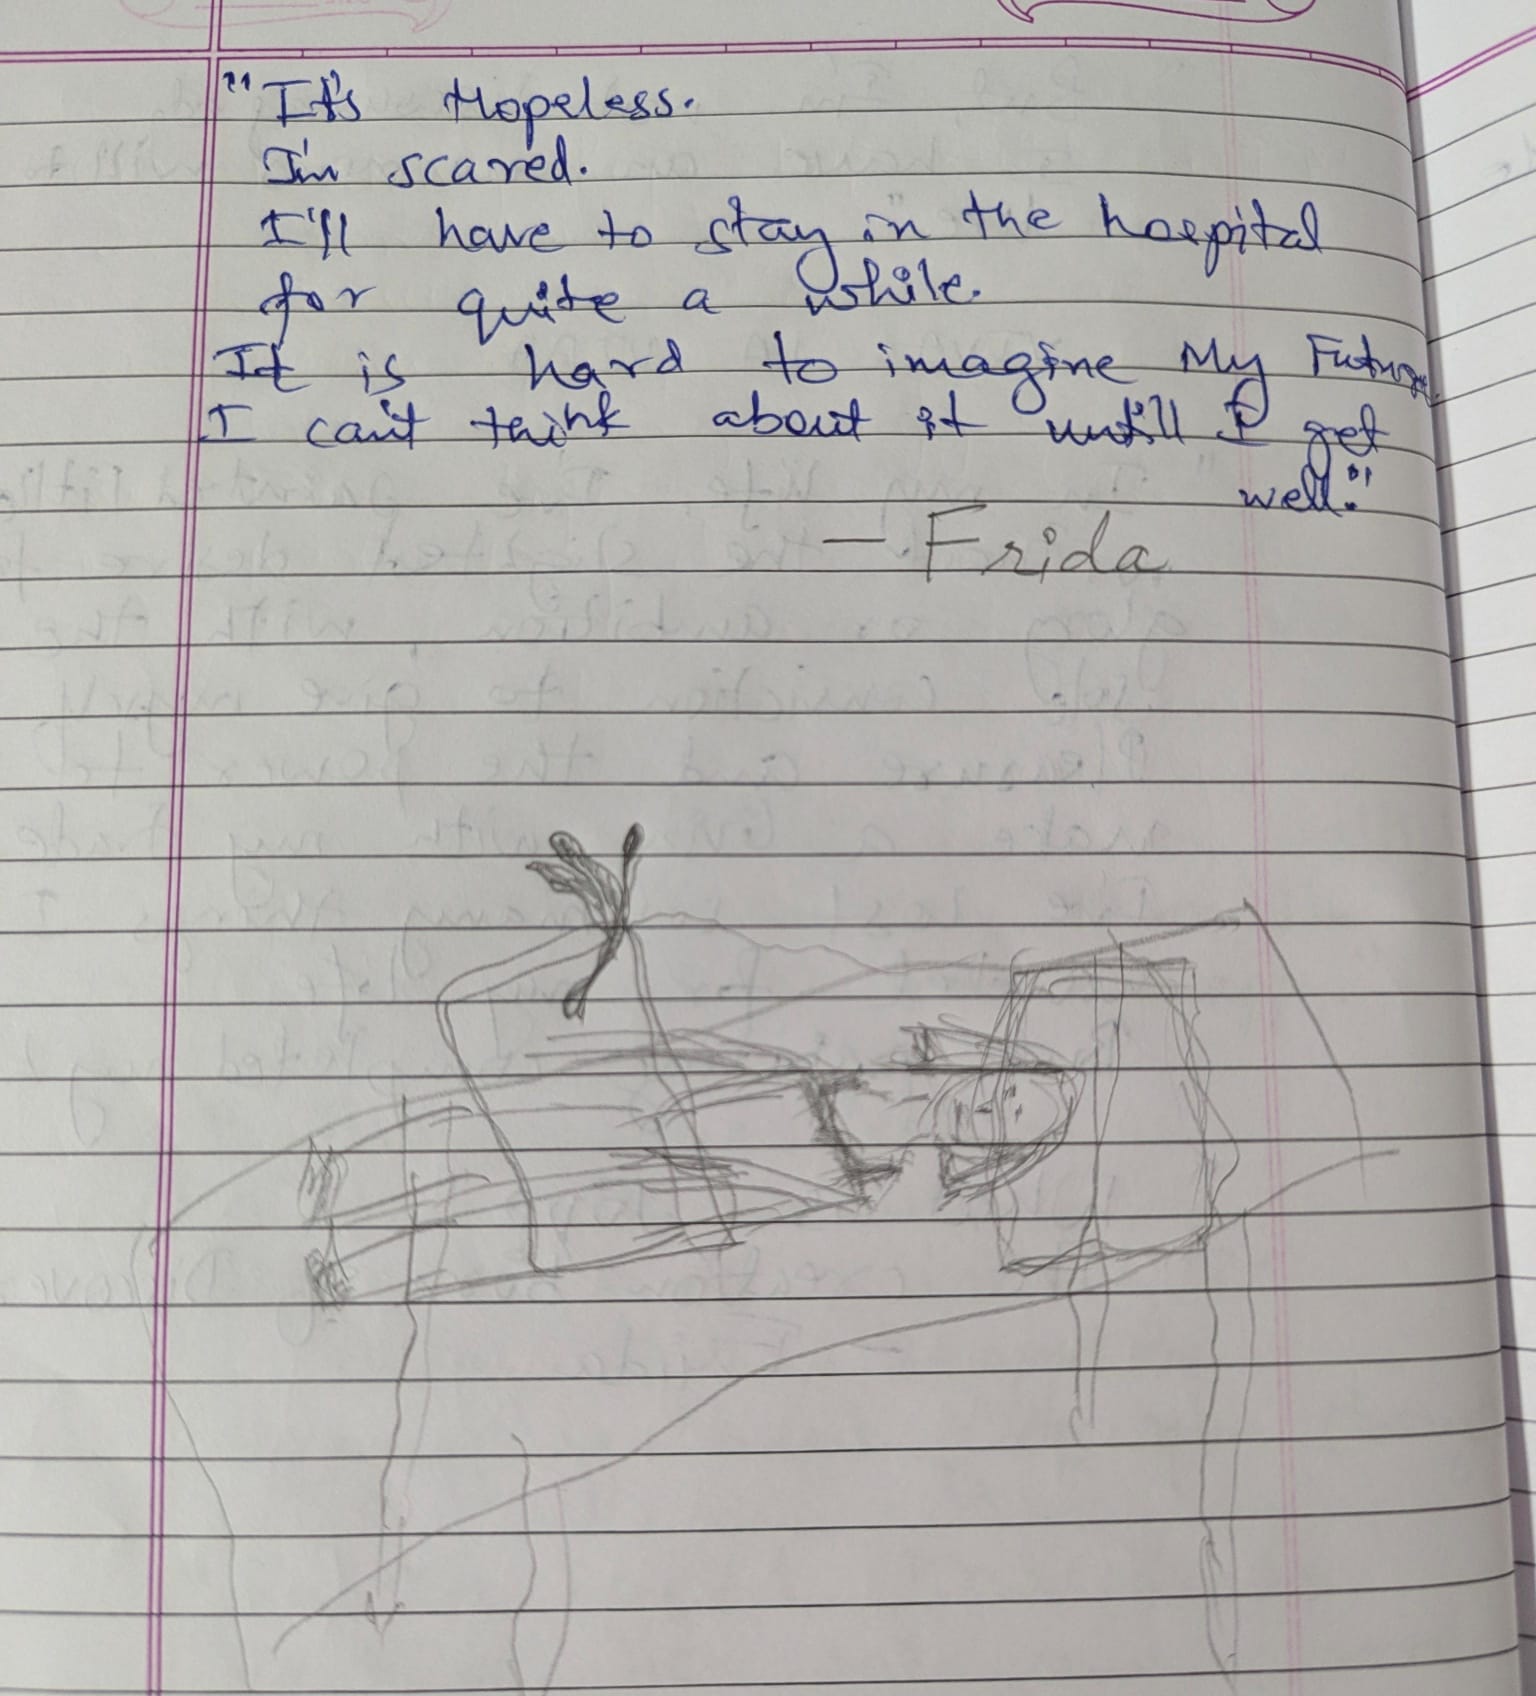 "It's Hopeless.
I'm scared.
I'll have to stay in the hospital
for quite a while.
It is hard to imagine My Future.
I can't think about it untill I get
well."
- Frida